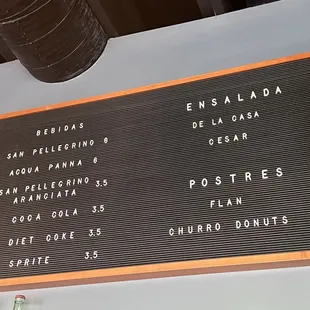 BEBIDAS
SAN PELLEGRINO 6
ACQUA PANNA 6
SAN PELLEGRINO 3.5
ARANCIATA
COCA COLA 3.5
DIET COKE 3.5
SPRITE 3.5
ENSALADA
DE LA CASA
CESAR
POSTRES
FLAN
CHURRO DONUTS